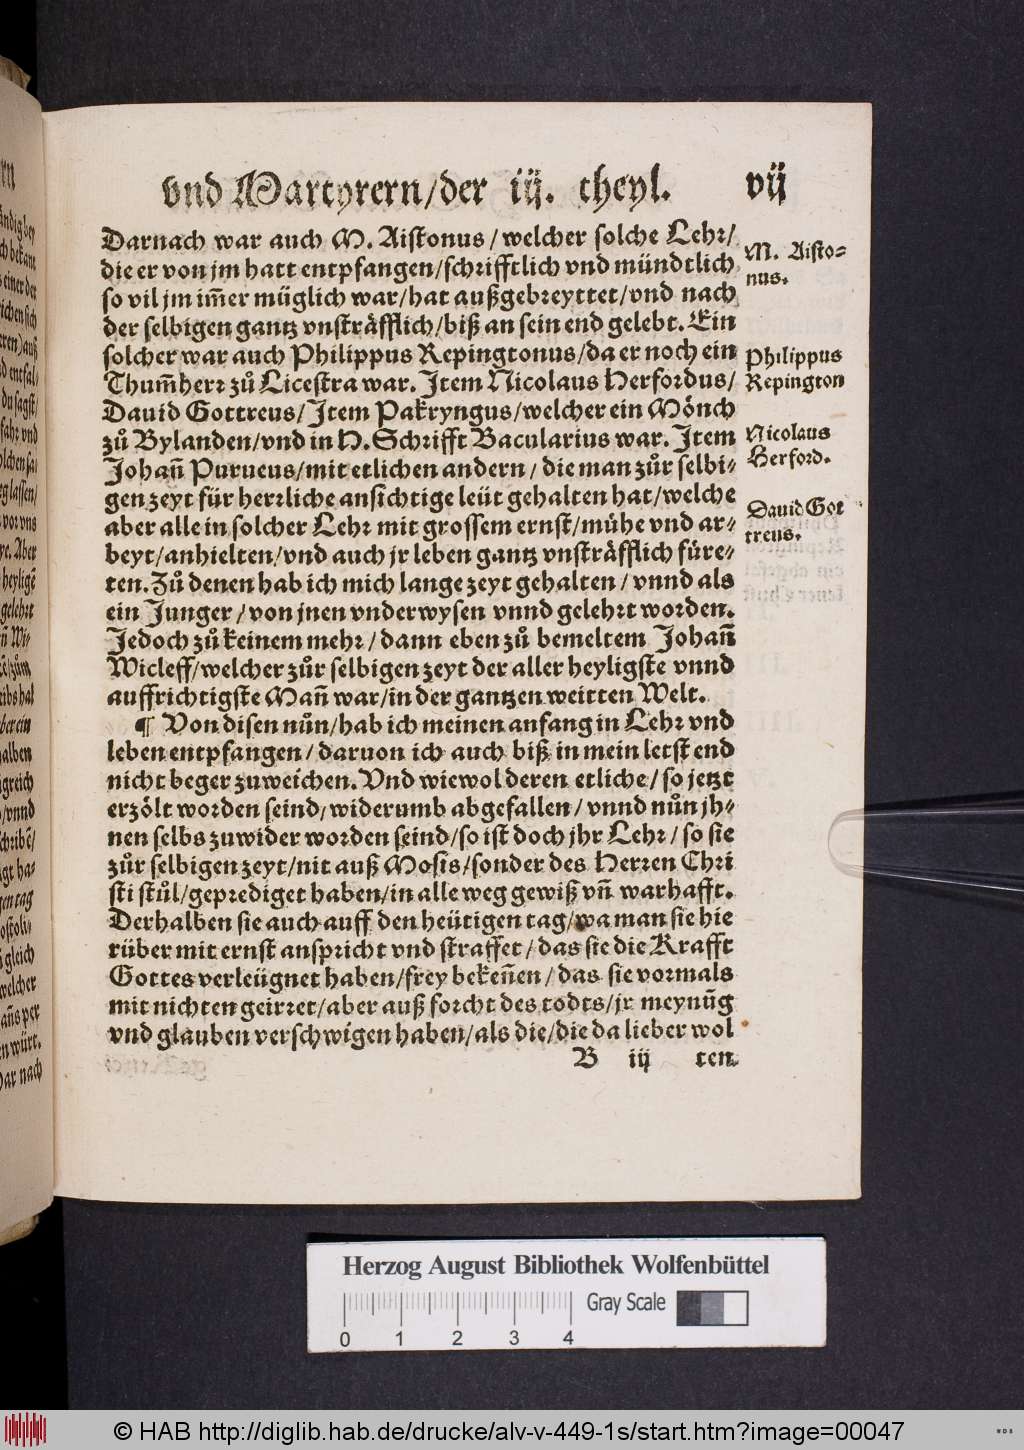 vnd Martyrern/der iij. theyl. vij
Darnach war auch M. Aistonus/welcher solche Lehr/
die er von jm hatt entpfangen/schrifftlich vnd mündtlich
so vil jm im̃er müglich war/hat außgebreyttet/vnd nach
der selbigen gantz vnsträfflich/biß an sein end gelebt. Ein
solcher war auch Philippus Repingtonus/da er noch ein
Thum̃herr zů Licestra war. Item Nicolaus Herfordus/
Dauid Gottreus/Item Pakryngus/welcher ein Mönch
zů Bylanden/vnd in H. Schrifft Bacularius war. Item
Johañ Purueus/mit etlichen andern/die man zůr selbi-
gen zeyt für herrliche ansichtige leüt gehalten hat/welche
aber alle in solcher Lehr mit grossem ernst/mühe vnd ar-
beyt/anhielten/vnd auch jr leben gantz vnsträfflich füre-
ten. Zů denen hab ich mich lange zeyt gehalten/vnnd als
ein Junger/von jnen vnderwysen vnnd gelehrt worden.
Jedoch zů keinem mehr/dann eben zů bemeltem Johañ
Wicleff/welcher zůr selbigen zeyt der aller heyligste vnnd
auffrichtigste Mañ war/in der gantzen weitten Welt.
¶ Von disen nůn/hab ich meinen anfang in Lehr vnd
leben entpfangen/daruon ich auch biß in mein letst end
nicht beger zuweichen. Vnd wiewol deren etliche/so jetzt
erzölt worden seind/widerumb abgefallen/vnnd nůn jh-
nen selbs zuwider worden seind/so ist doch jhr Lehr/so sie
zůr selbigen zeyt/nit auß Mosis/sonder des Herren Chri
sti stůl/geprediget haben/in alle weg gewiß vñ warhafft.
Derhalben sie auch auff den heütigen tag/wa man sie hie
rüber mit ernst anspricht vnd straffet/das sie die Krafft
Gottes verleügnet haben/frey bekeñen/das sie vormals
mit nichten geirret/aber auß forcht des todts/jr meynũg
vnd glauben verschwigen haben/als die/die da lieber wol
B iij ten
M. Aisto-
nus.
Philippus
Repington
Nicolaus
Herford.
Dauid Got
treus.
Herzog August Bibliothek Wolfenbüttel
Gray Scale
0 1 2 3 4
© HAB http://diglib.hab.de/drucke/alv-v-449-1s/start.htm?image=00047